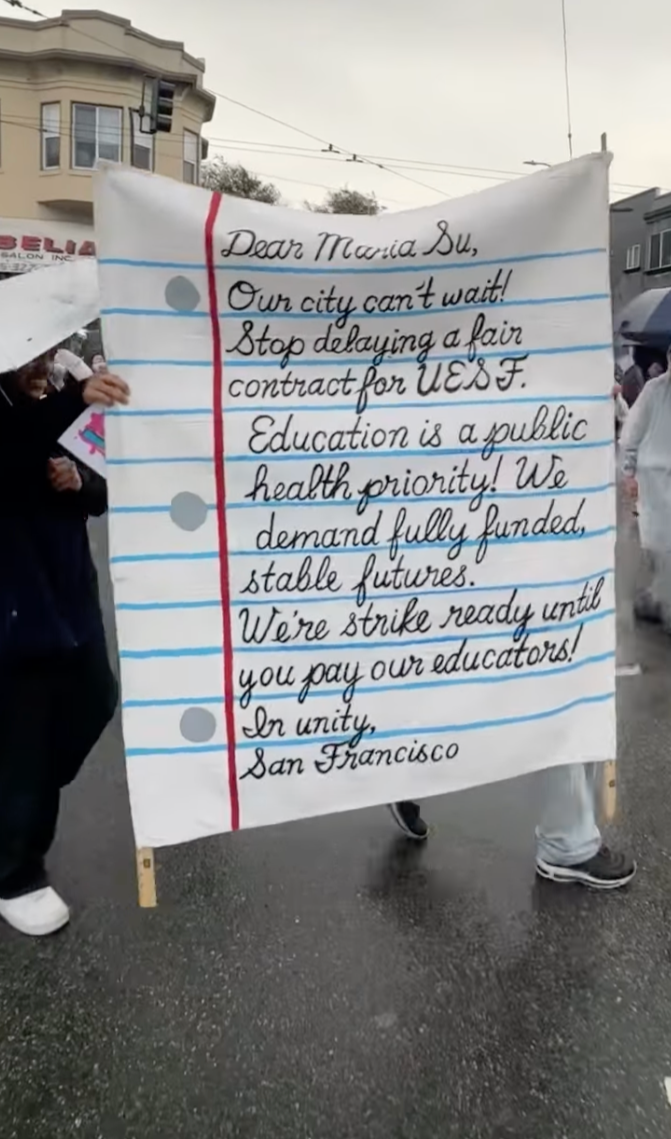 BELIA
SALON INC.
Dear Maria Su,
Our city can't wait!
Stop delaying a fair
contract for UESF.
Education is a public
health priority! We
demand fully funded,
stable futures.
We're strike ready until
you pay our educators!
In unity,
San Francisco